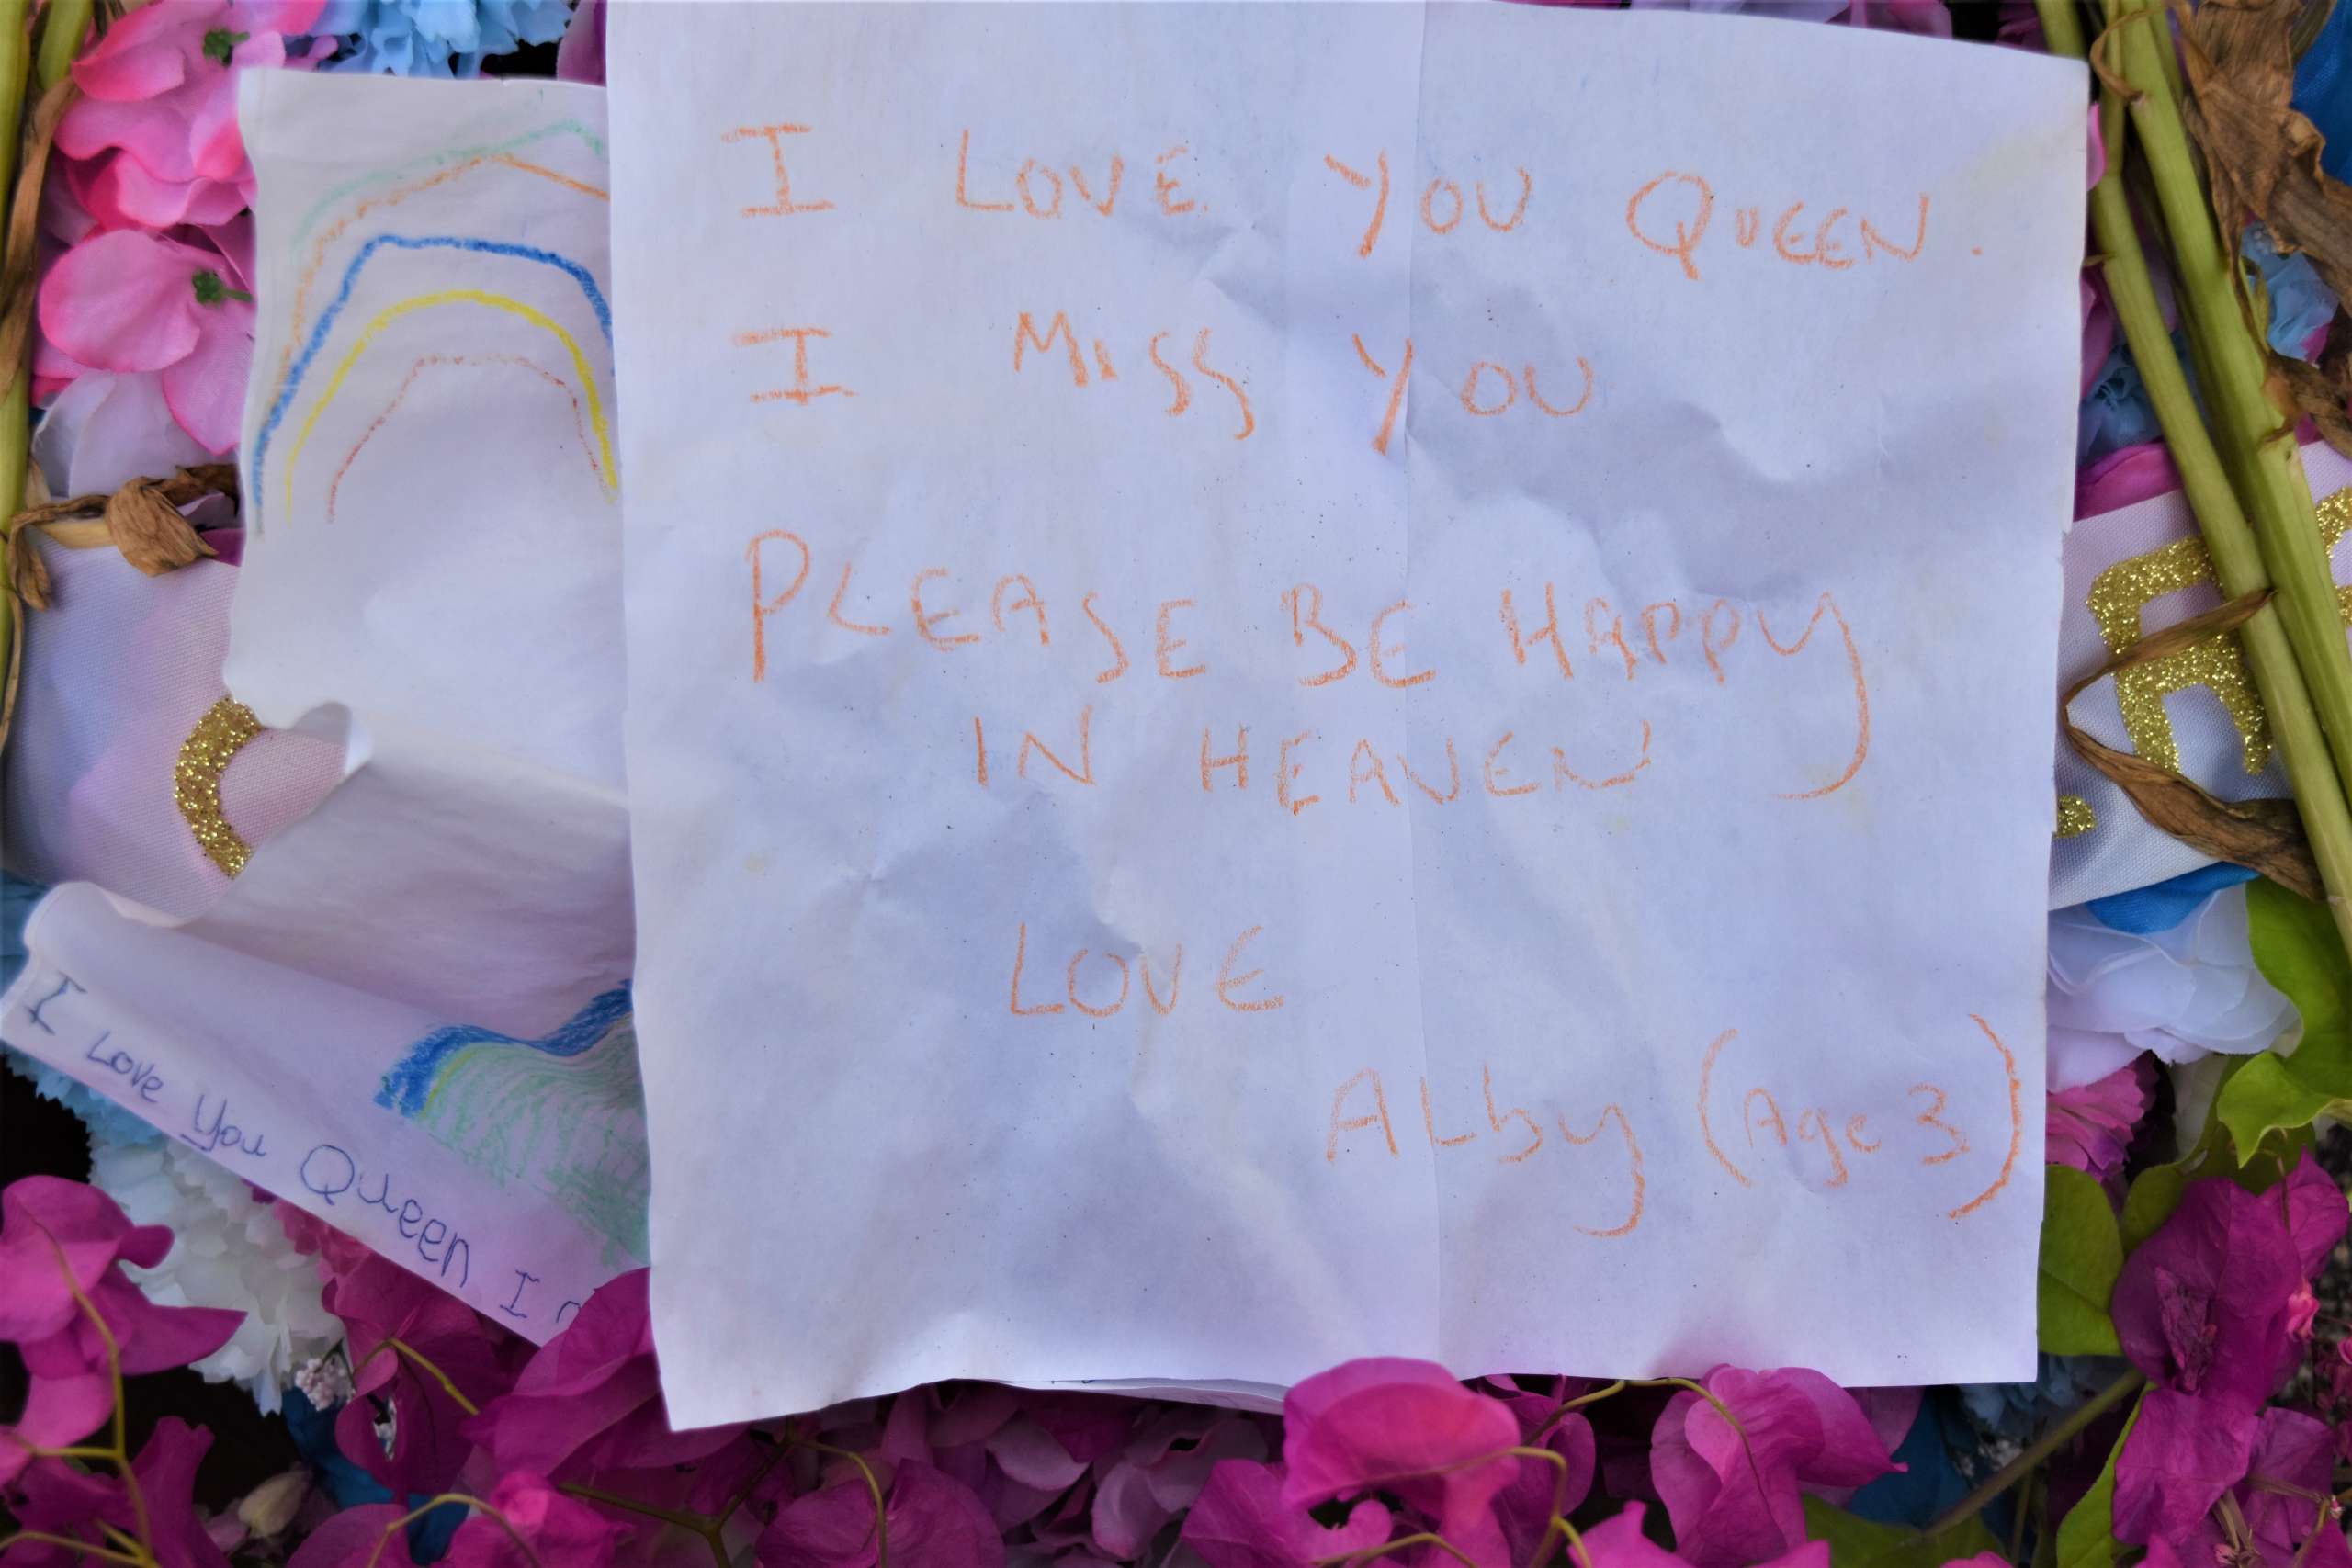 I LOVE YOU QUEEN.
I MISS YOU
PLEASE BE HAPPY
IN HEAVEN
LOVE
ALby (Age 3)
I Love You Queen I